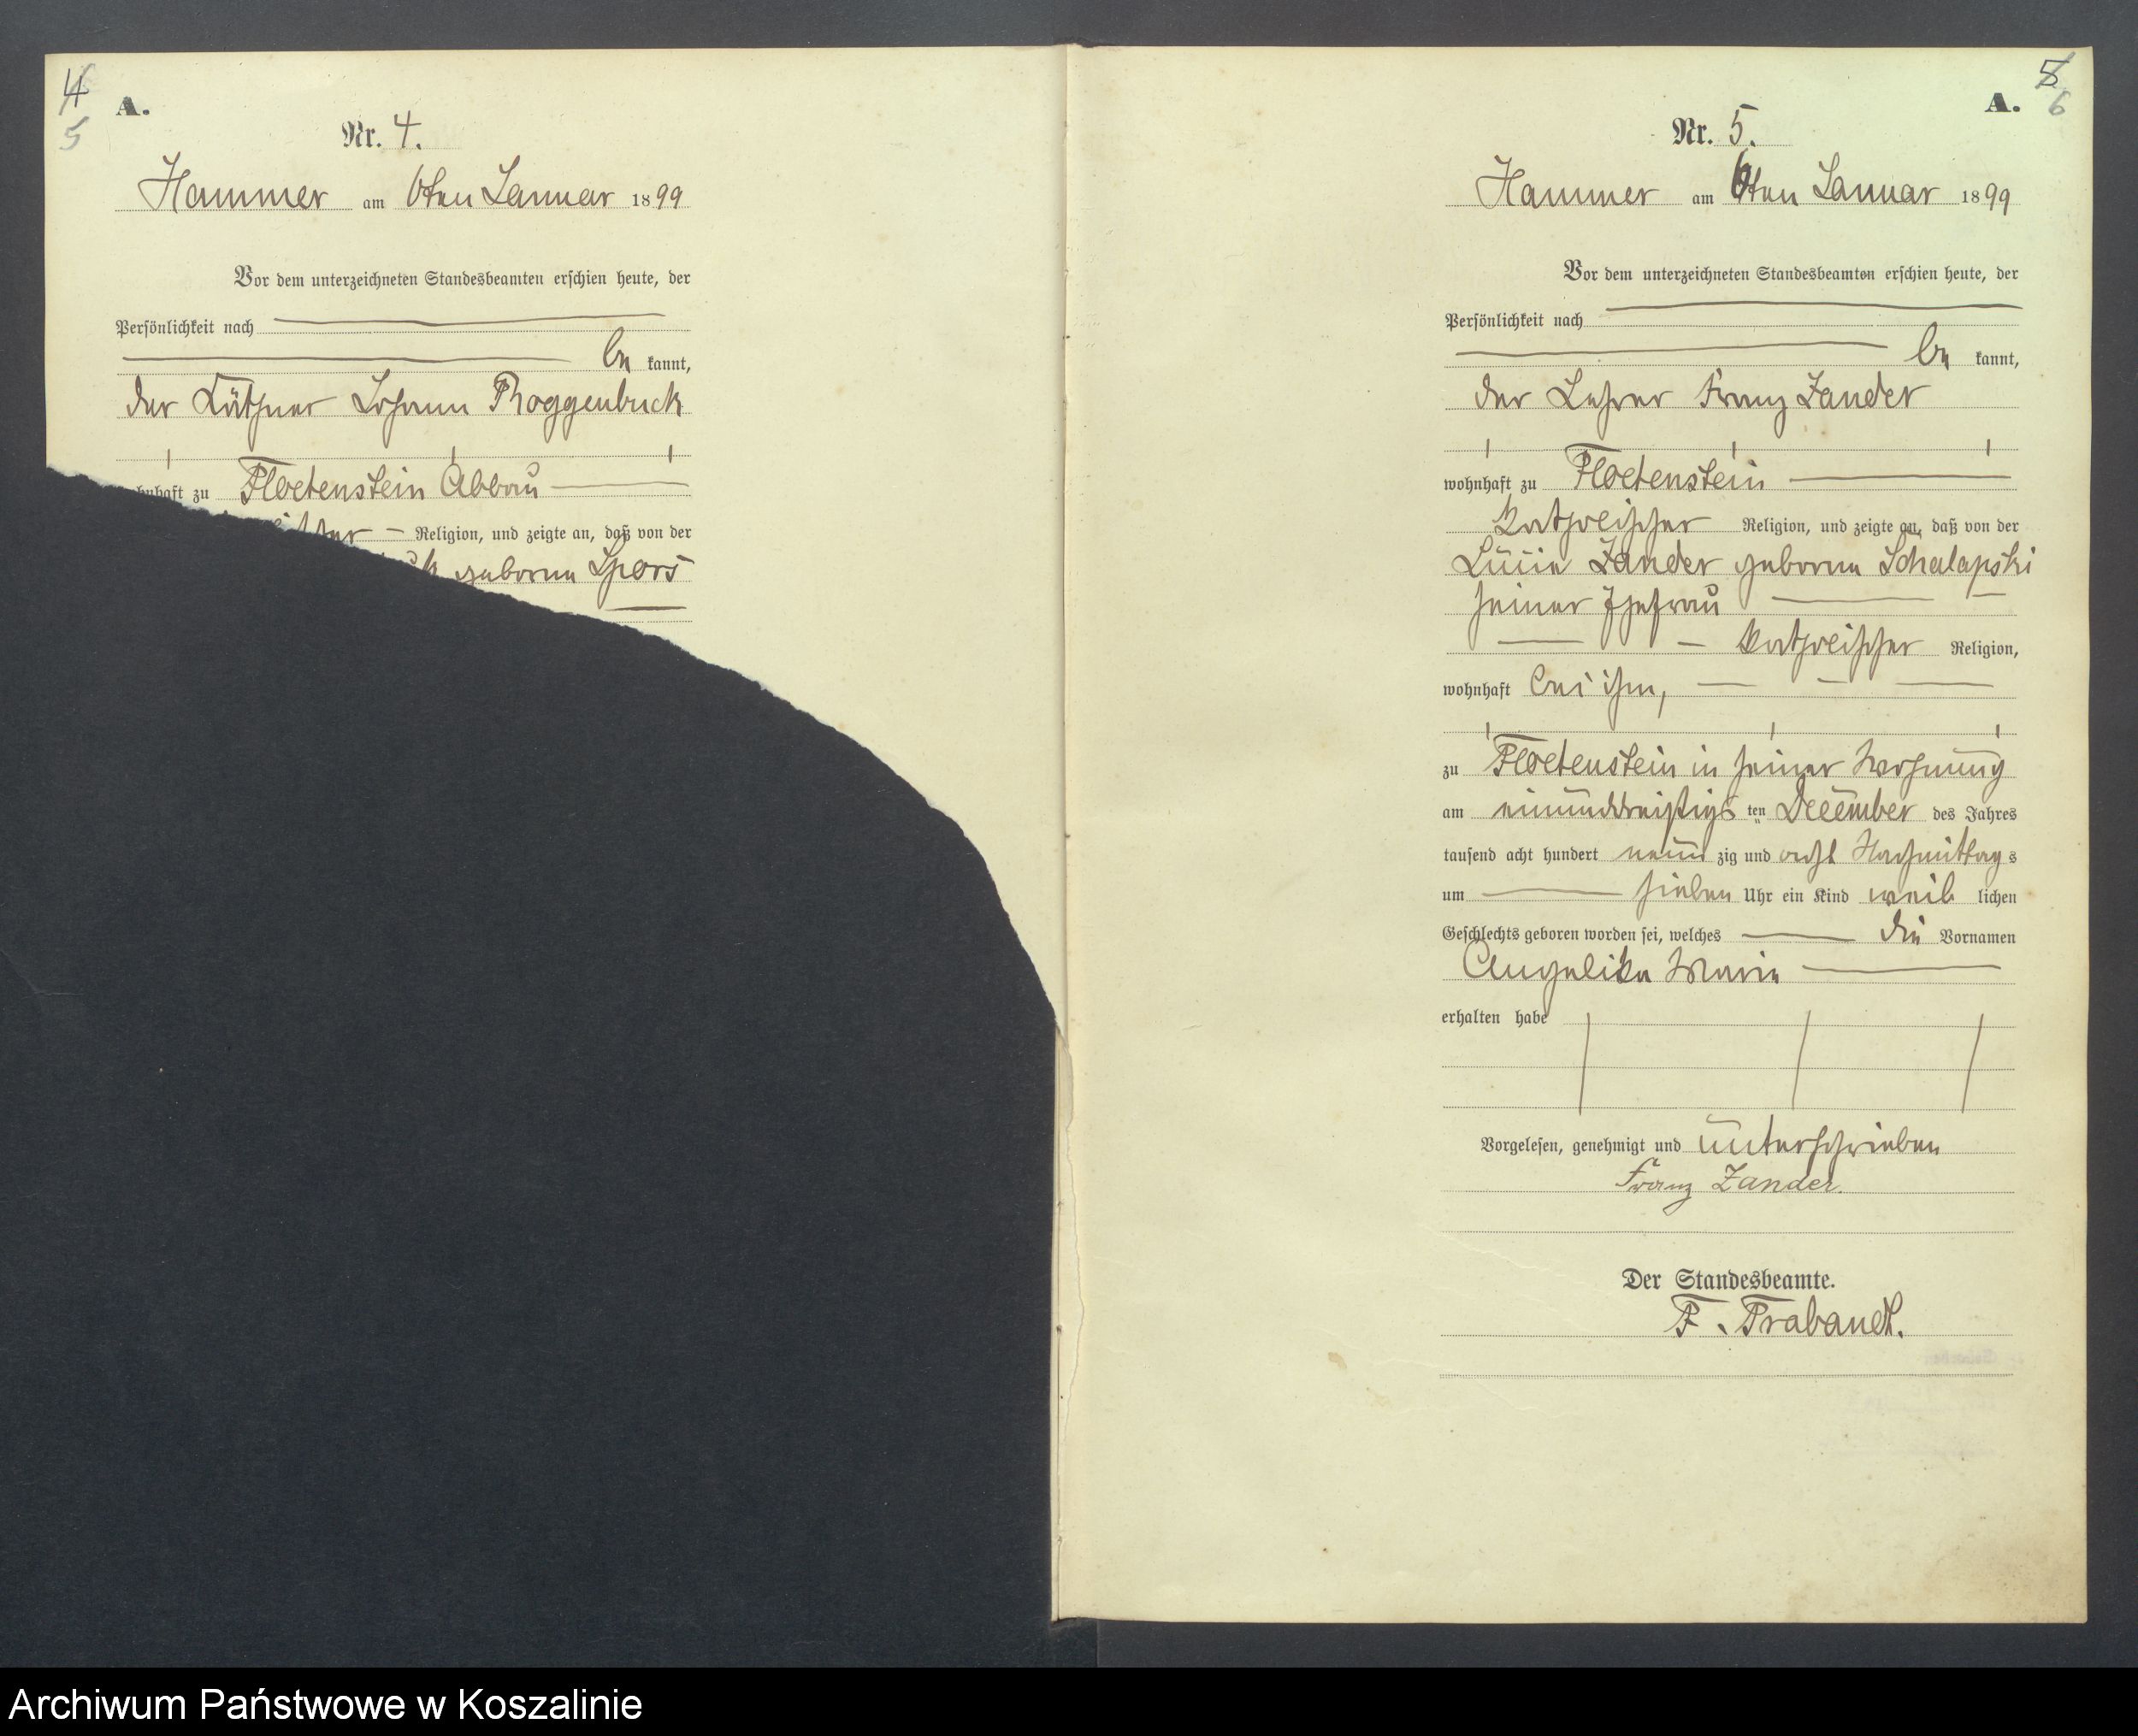 4
5
A.
Nr. 4.
Hammer am 6ten Januar 1899
Vor dem unterzeichneten Standesbeamten erschien heute, der
Persönlichkeit nach
be kannt,
der Käthner Johann Roggenbuck
wohnhaft zu Floetenstein Abbau
Religion, und zeigte an, daß von der
geborne Spors
5
6
A.
Nr. 5.
Hammer am 6ten Januar 1899
Vor dem unterzeichneten Standesbeamten erschien heute, der
Persönlichkeit nach
be kannt,
der Lehrer Franz Zander
wohnhaft zu Floetenstein
katholischer Religion, und zeigte an, daß von der
Zander geborne Schalapski
seiner Ehefrau
katholischer Religion,
wohnhaft bei ihm,
zu Floetenstein in seiner Wohnung
am einunddreißigs ten December des Jahres
tausend acht hundert neun zig und acht Nachmittag s
um sieben Uhr ein Kind weib lichen
Geschlechts geboren worden sei, welches die Vornamen
Angelika Marie
erhalten habe
Vorgelesen, genehmigt und unterschrieben
Franz Zander.
Der Standesbeamte.
F. Trabandt.
Archiwum Państwowe w Koszalinie